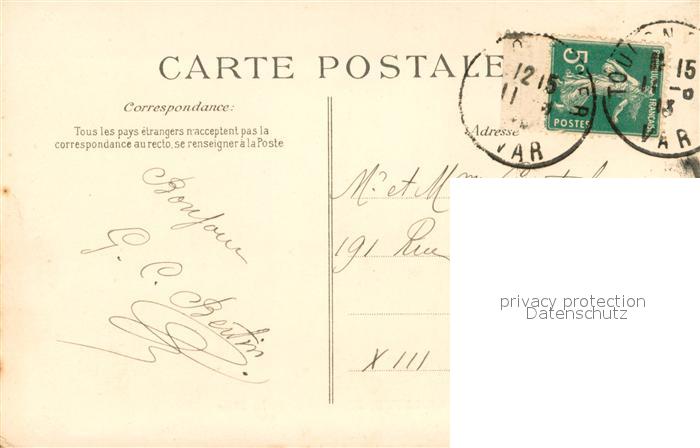 CARTE POSTALE
Correspondance:
Tous les pays étrangers n'acceptent pas la
correspondance au recto, se renseigner à la Poste
Adresse
5c
POSTES
FRANÇAISE
12 15
11
VAR
TOULON
15
VAR
Bonjour
G. C. Bertin.
Mr et Mme
191 Rue
XIII
privacy protection
Datenschutz